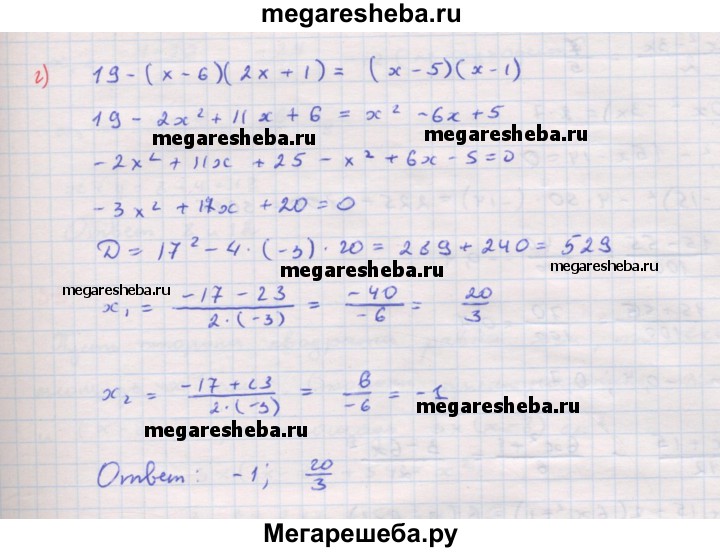 megaresheba.ru
г) 19 - (x - 6)(2x + 1) = (x - 5)(x - 1)
19 - 2x² + 11x + 6 = x² - 6x + 5
megaresheba.ru megaresheba.ru
- 2x² + 11x + 25 - x² + 6x - 5 = 0
- 3x² + 17x + 20 = 0
megaresheba.ru
D = 17² - 4 · (-3) · 20 = 289 + 240 = 529
megaresheba.ru megaresheba.ru megaresheba.ru
x₁ = (-17 - 23)/(2·(-3)) = (-40)/(-6) = 20/3
x₂ = (-17 + 23)/(2·(-3)) = 6/(-6) = -1
megaresheba.ru
megaresheba.ru
Ответ: -1; 20/3
megaresheba.ru
Мегарешеба.ру